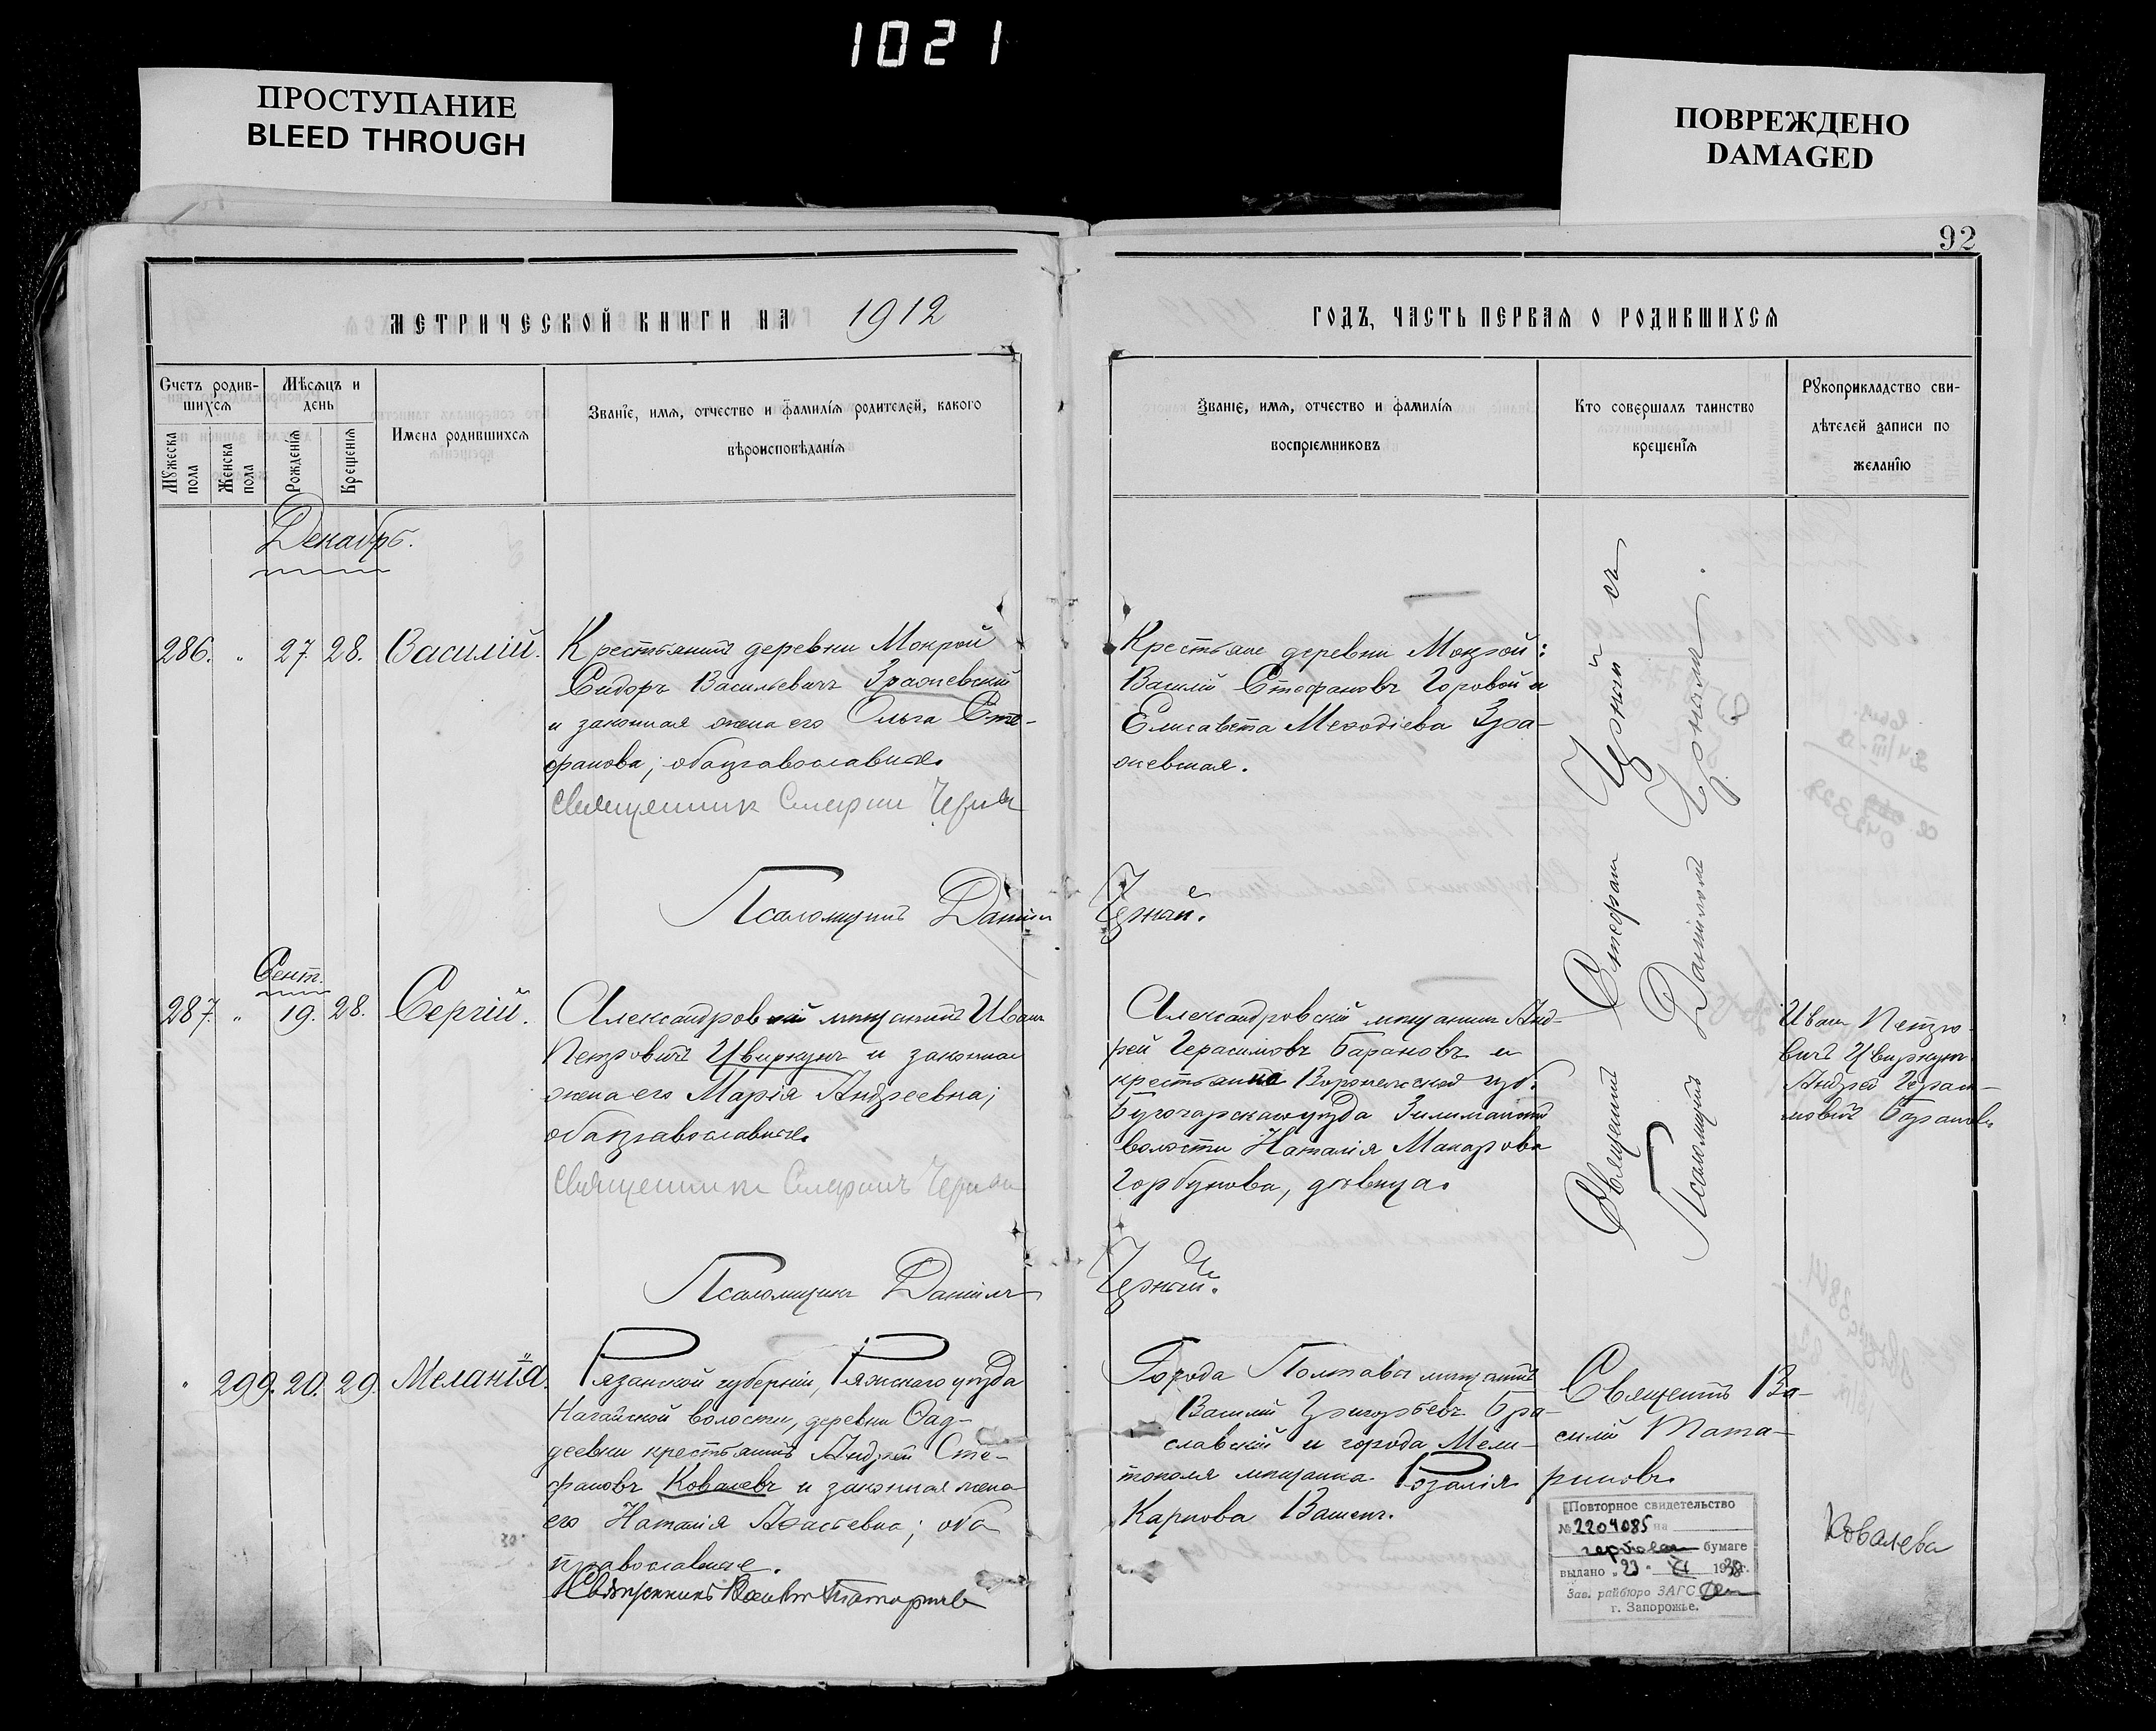 1021
ПРОСТУПАНИЕ
BLEED THROUGH
ПОВРЕЖДЕНО
DAMAGED
92
МЕТРИЧЕСКОЙ КНИГИ НА 1912
ГОДЪ, ЧАСТЬ ПЕРВАЯ О РОДИВШИХСЯ
Счетъ родив-
шихся
Мужеска
пола
Женска
пола
Мѣсяцъ и
день
Рожденія
Крещенія
Имена родившихся
Званіе, имя, отчество и фамилія родителей, какого
вѣроисповѣданія
Званіе, имя, отчество и фамилія
воспріемниковъ
Кто совершалъ таинство
крещенія
Рукоприкладство сви-
дѣтелей записи по
желанію
Декабрь.
286. " 27. 28. Василій.
Крестьянинъ деревни Мокрой
Сидоръ Васильевичъ Зражевскій
и законная жена его Ольга Сте-
фанова; оба православные.
Священник Стефан Черный
Крестьяне деревни Мокрой:
Василій Стефановъ Горовой и
Елисавета Меѳодіева Зра-
жевская.
Псаломщикъ Даніилъ Черный.
Сент.
287. " 19. 28. Сергій.
Александровскій мѣщанинъ Иванъ
Петровичъ Цвиркунъ и законная
жена его Марія Андреевна;
оба православные.
Священник Стефанъ Черный
Александровскій мѣщанин Анд-
рей Герасимовъ Барановъ и
крестьянка Воронежской губ.
волости Наталія Макарова
Горбунова, дѣвица.
Священникъ Стефан Черный съ
Псаломщикомъ Даніиломъ Чернымъ.
Иван Петро-
вичъ Цвиркун
Андрей Гераси-
мовичъ Баранов
Псаломщикъ Даніилъ Черный.
" 299. 20. 29. Меланія.
Рязанской губерніи, Ряжскаго уѣзда
Нагайской волости, деревни Ѳад-
деевки крестьянинъ Андрей Сте-
фановъ Ковалевъ и законная жена
его Наталія; оба
православные.
Священникъ Василій Татариновъ
Города Полтавы мѣщанинъ
Василій Григорьевъ Бра-
славскій и города Мели-
тополя мѣщанка Розалія
Карпова
Священникъ Ва-
силій Тата-
риновъ.
Повторное свидетельство
№ 2204085 на
гербовой бумаге
выдано „23" XI 1939г.
Зав. райбюро ЗАГС
г. Запорожье.
Ковалева